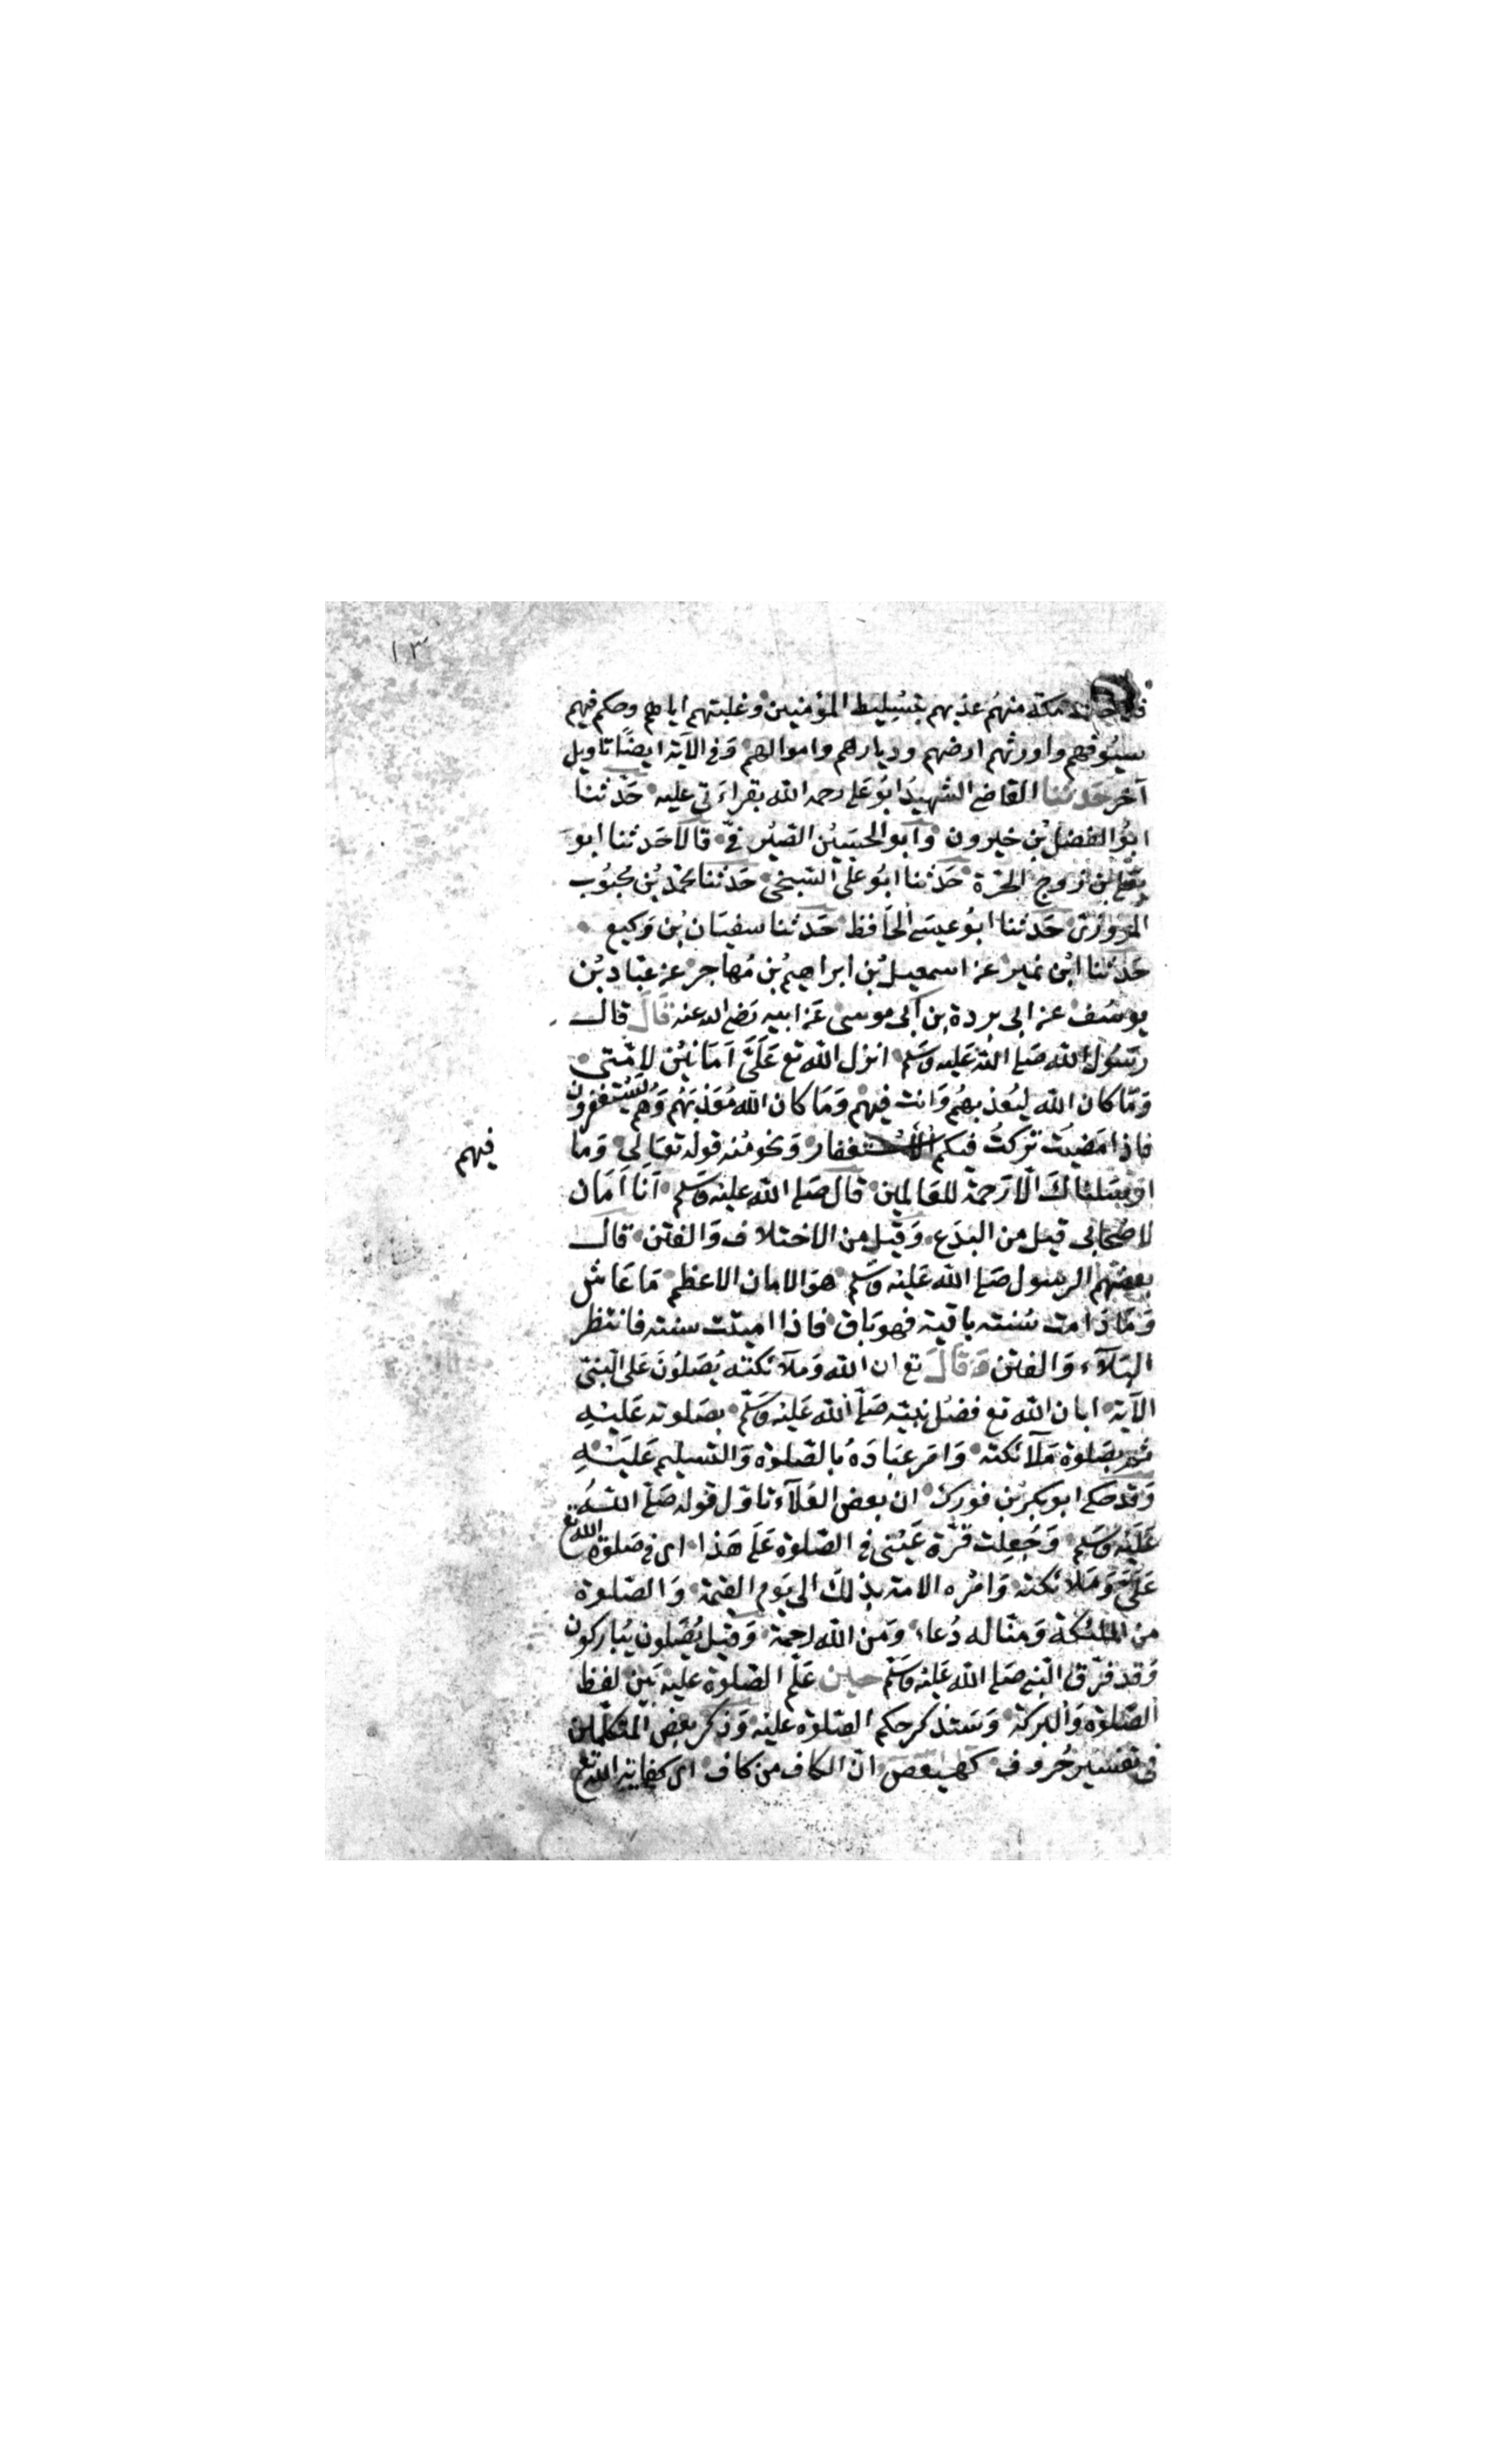 ١٣
مكة منهم عذبهم بتسليط المؤمنين وغلبتهم اياهم وحكم فيهم
سيوفهم واورثهم ارضهم وديارهم واموالهم وَفى الآية ايضًا تاويل
آخر حَدثنا القاضى الشهيدُ ابوُ عَلى رحمه الله بقراءَتى عليه حَدثنا
ابوُ الفضل بْن خيرون وَابو الحسَيْن الصَيْرفىّ قالا حَدثنا ابو
يعلى بن زوج الحرّة حَدثنا ابوُ على السّبخى حَدثنا محمّد بْن محبُوب
المروَزىّ حَدثنا ابوُ عيسَى الحافظ حَدثنا سفيَان بْن وَكيع
حَدثنا ابْن نمير عن اسمعيل بْن ابراهيمُ بْن مُهاجر عن عبّاد بْن
يوسُف عن ابى بردة بن ابى موسى عَن ابيه رَضى الله عنه قالَ قال
رسُول الله صَلى الله عَليه وَسَلم انزل الله تع عَلَىَّ اَمَانيْن لامّتى
وَمَا كان الله ليُعذبهُم وَانت فيهم وَمَا كان الله مُعَذبَهُم وَهُم يَسْتغفرون
فاذا مَضيت تركتُ فيكم الاستغفار وَنحو مْنه قوله تعَالى وَما
ارسَلناكَ الّا رَحمة للعَالمين قال صَلى الله عليْه وَسَلم اَنا اَمَان
فيهم
لاصْحَابى قيل من البدَع وَقيل من الاختلاف وَالفتن قال
بعضهم الرسول صَلى الله عَليْه وَسَلم هوَ الامان الاعظم مَا عَاش
وَمَا دَامت سُنته باقية فهو بَاق فاذا اميتت سنته فانتظر
البَلَآء وَالفتن وَقَالَ تع ان الله وَمَلآئكتَه يُصَلوُنَ عَلى النّبىّ
الآية ابان الله تع فضْل نبيّه صَلى الله عَليْه وَسَلم بصَلوته عَليْهِ
ثم بصَلوة مَلآئكته وَامَر عبَادَهُ بالصّلوة وَالتسليم عَليَْهِ
وَقد حَكى ابو بكر بْن فورك ان بعض العُلمَآء تاوّل قوله صَلى اللهُ
عَلَيْه وَسَلم وَجُعِلت قرّة عَيْنى فى الصّلوة عَلَى هَذا اى فى صَلوة الله تع
عَلَىَّ وَمَلائكته وَامْره الامة بذلك الى يَوم القيمة وَالصّلوة
من الملئكة وَمنّا له دُعاء وَمن الله رحمة وَقيل يُصَلون يُبَاركون
وَقد فرّق النّبى صَلى الله عَليْه وَسَلم حين عَلّم الصّلوة عليْه بَين لفظ
الصّلوة وَالبرَكة وَسَنذكر حكم الصّلوة عليْه وَذكر بعض المتكلّمين
فى تفسير حُروف كهيعص انّ الكاف من كاف اى كفاية الله تع